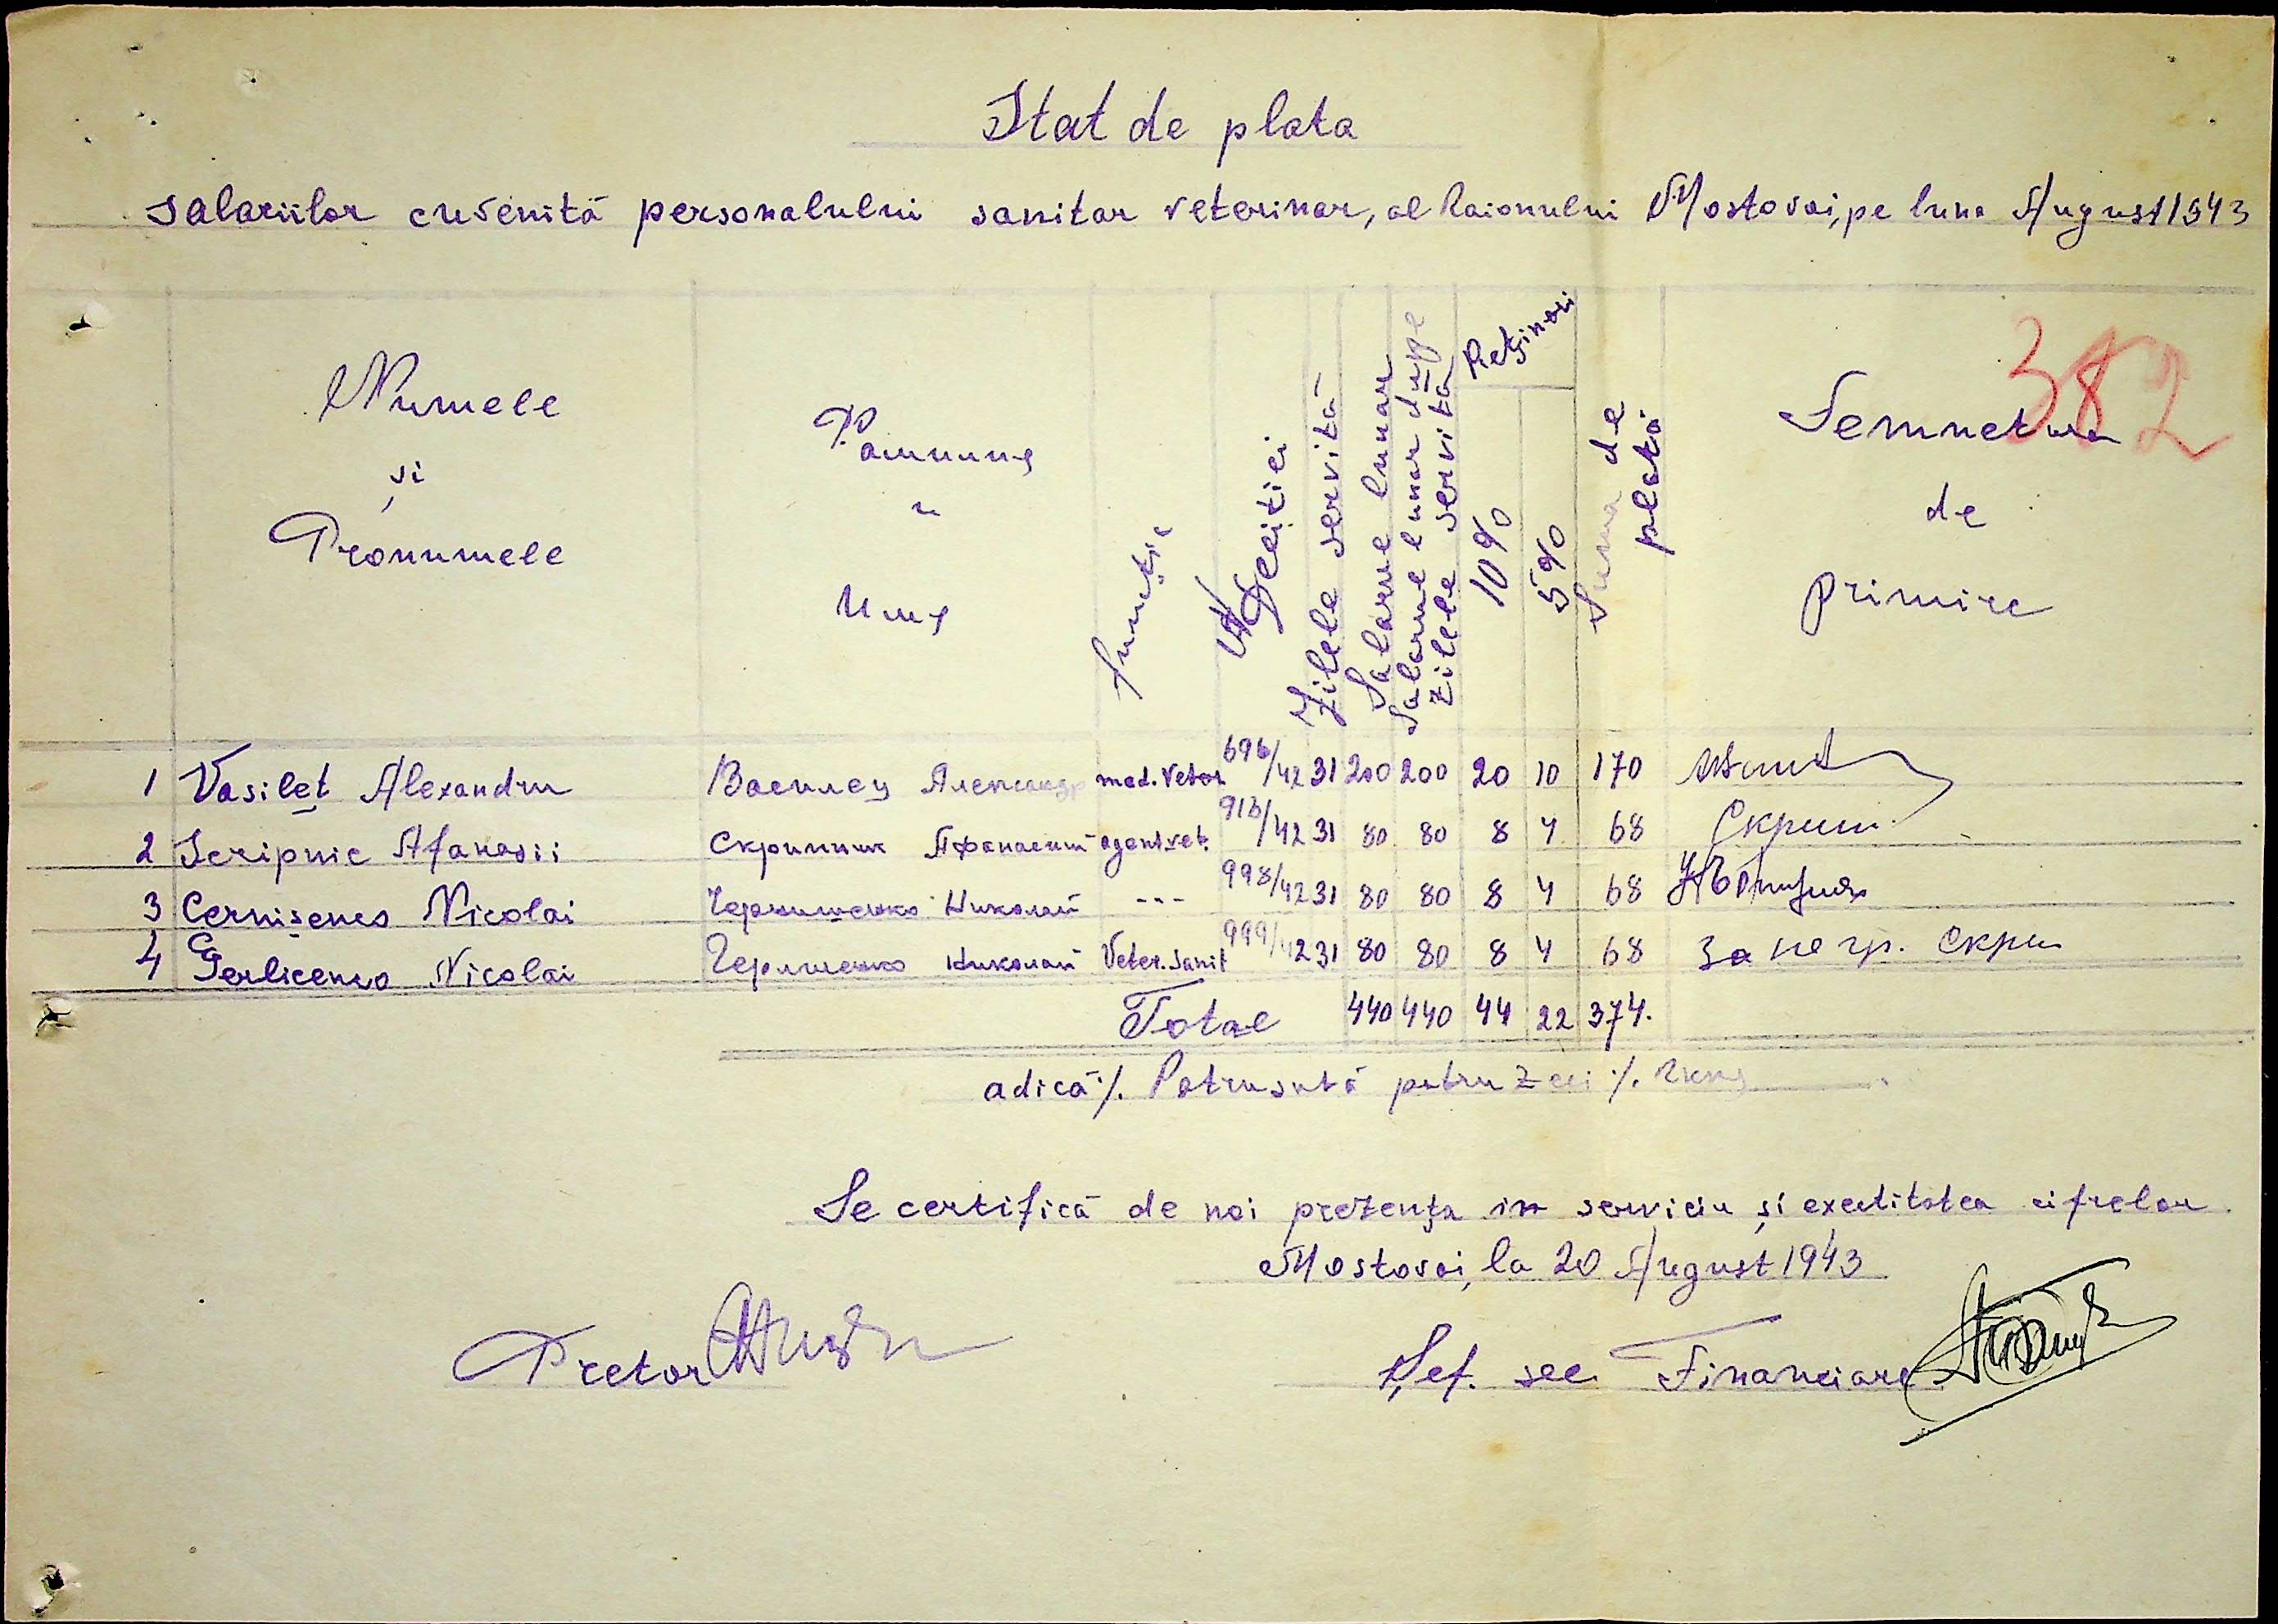 Stat de plata
salariilor cuvenită personalului sanitar veterinar, al Raionului Mostovoi, pe luna August 1943
382
Numele și Pronumele
Фамилия и Имя
Funcția
N Deciției
Zilele servită
Salarul lunar
Salarul lunar dupe zilele servită
Rețineri
10%
5%
Suma de plată
Semnetura de primire
1 Vasileț Alexandru Василец Александр med. Veter 696/42 31 200 200 20 10 170
2 Scripnic Afanasii Скрипник Афанасий agent vet. 913/42 31 80 80 8 4 68 Скрип
3 Cernișenco Nicolai Чернишенко Николай --- 998/42 31 80 80 8 4 68
4 Gerlicenco Nicolai Николай Veter. Sanit 999/42 31 80 80 8 4 68 За не гр. Скрип
Total 440 440 44 22 374.
adică ./. Patrusută patruzeci ./.
Se certifică de noi prezența in serviciu și exectitatea cifrelor.
Mostovoi, la 20 August 1943
Pretor
Șef. sec. Financiare